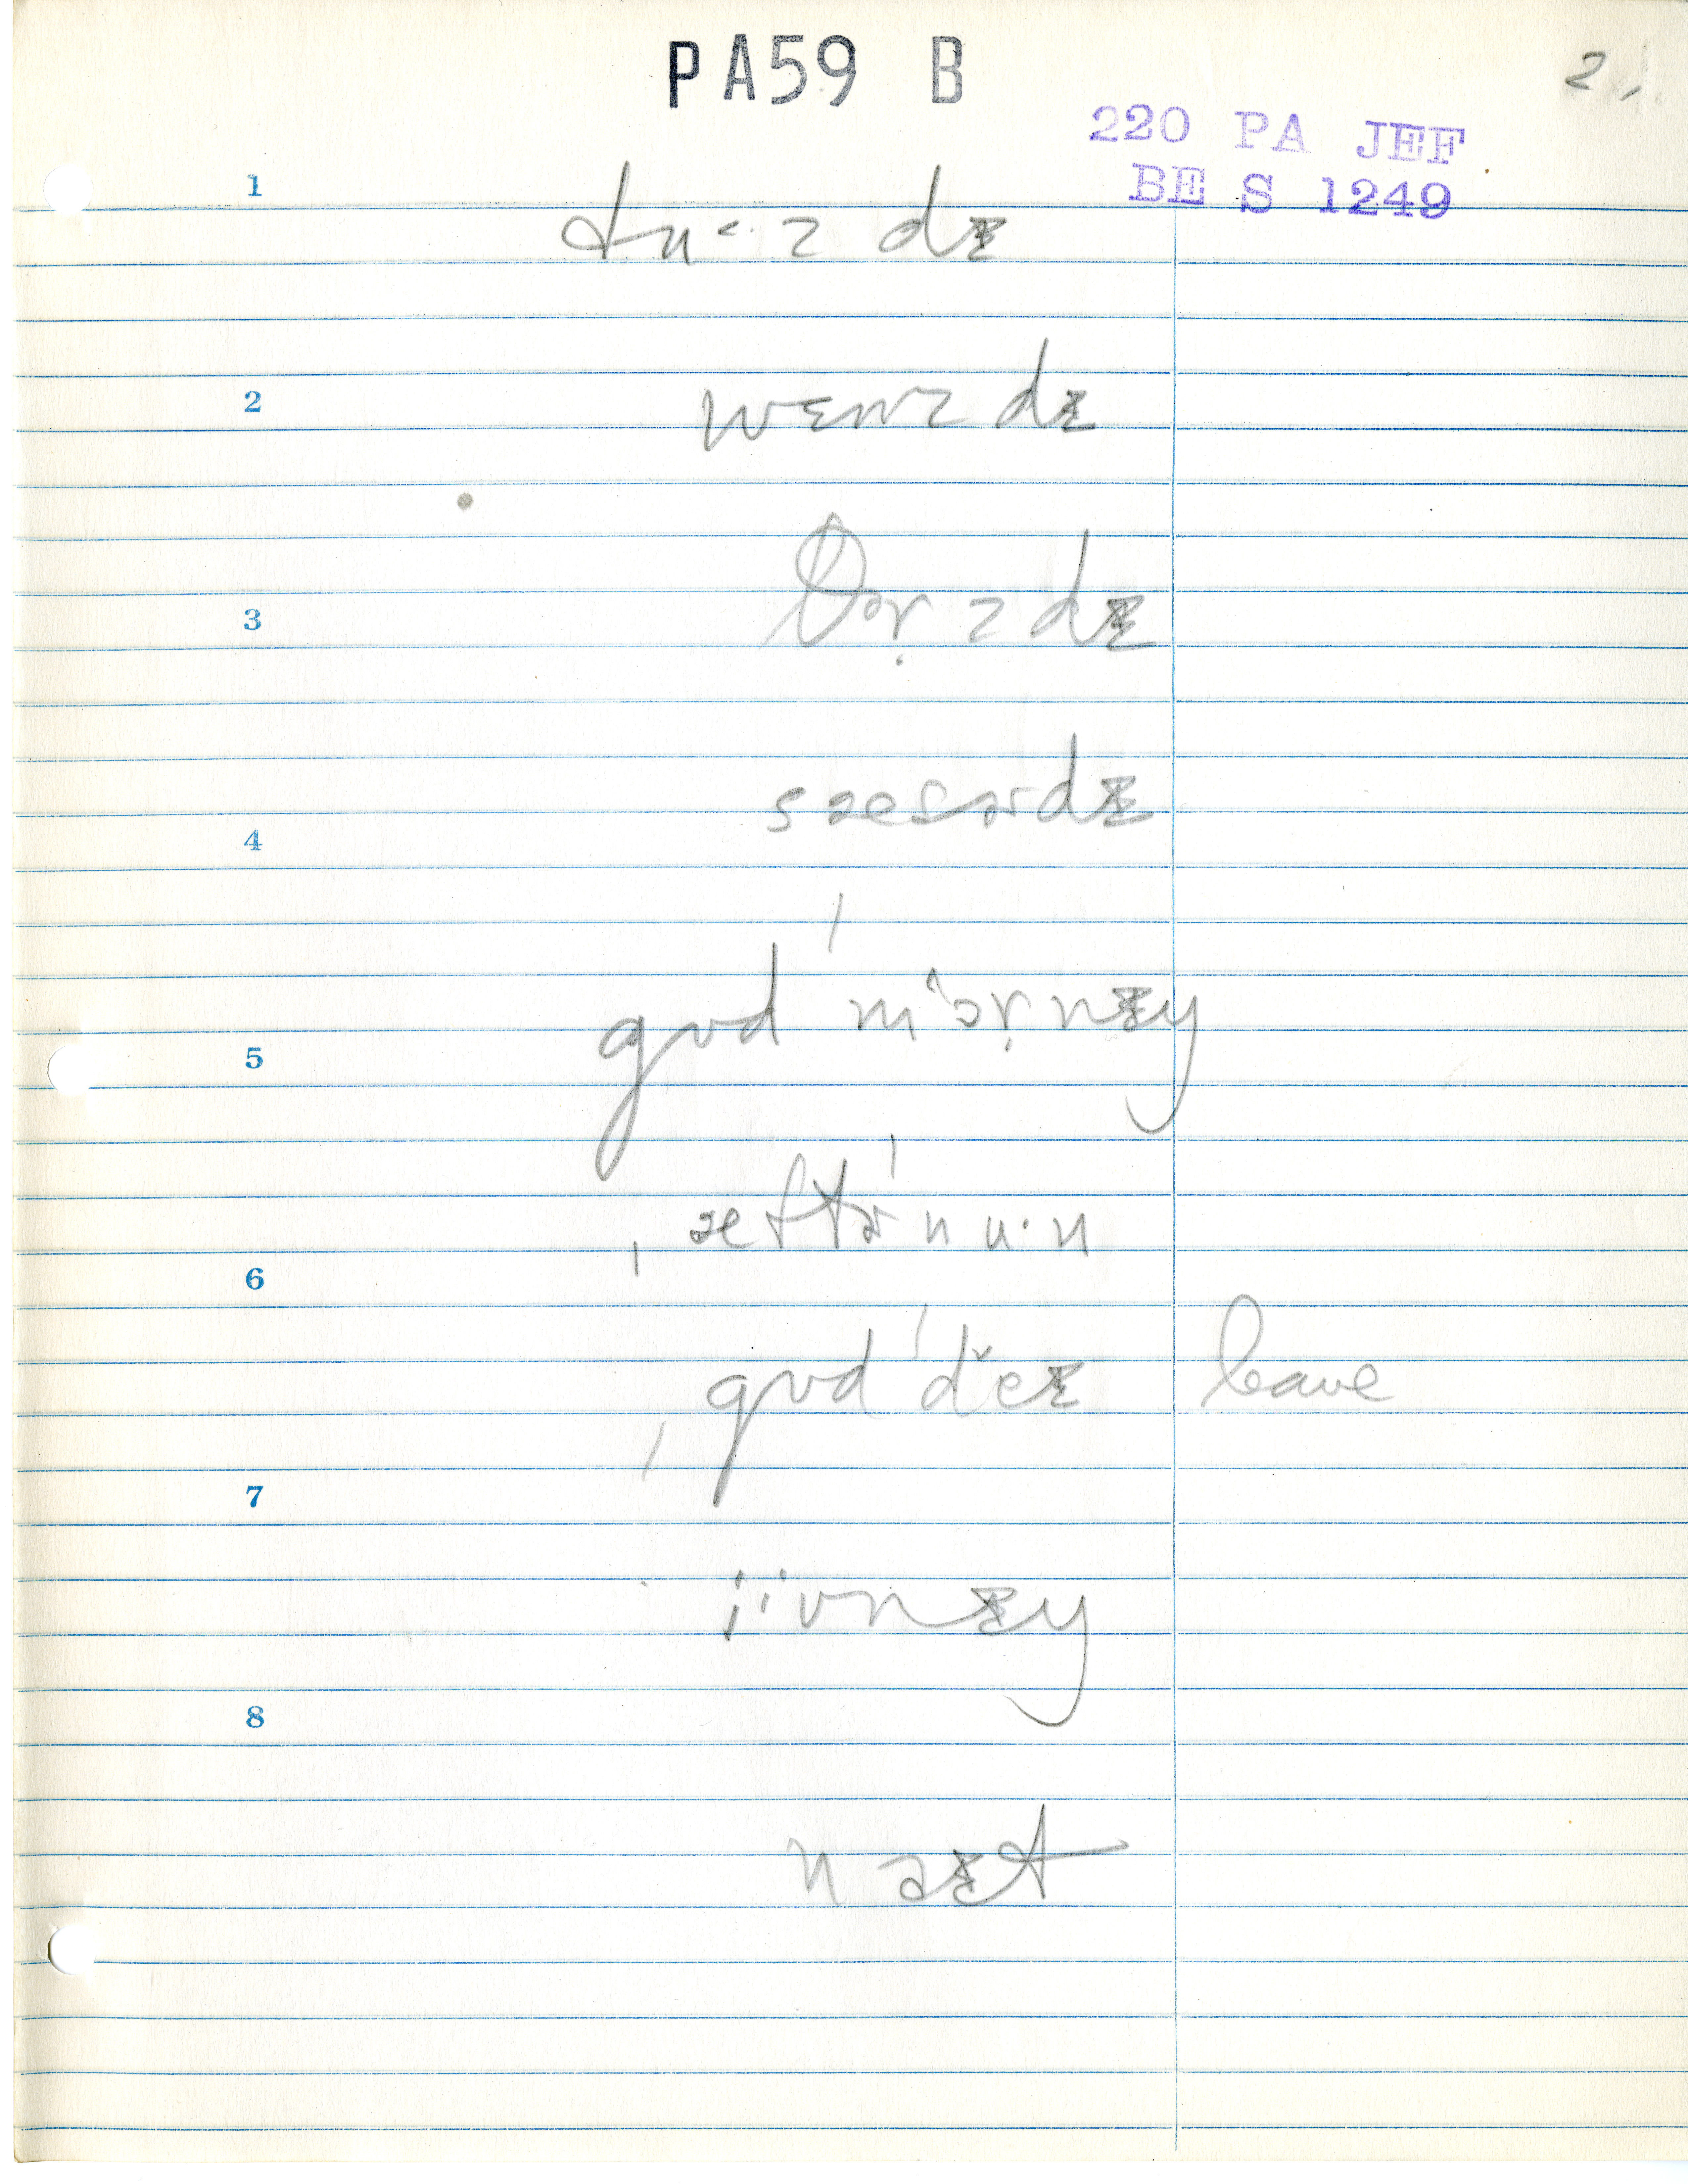 PA59 B
2.
220 PA JEF
BE S 1249
1
tu˂·zdɪ
2
wɛnzdɪ
3
θɚ̣zdɪ
sæsɚdɪ
4
gʊd ˈmɔ^ṛnɪŋ
5
ˌæftɚˈnu·n
6
ˌgʊdˈde˅ɪ leave
7
ɪ̈ʋnɪŋ
8
naɪt